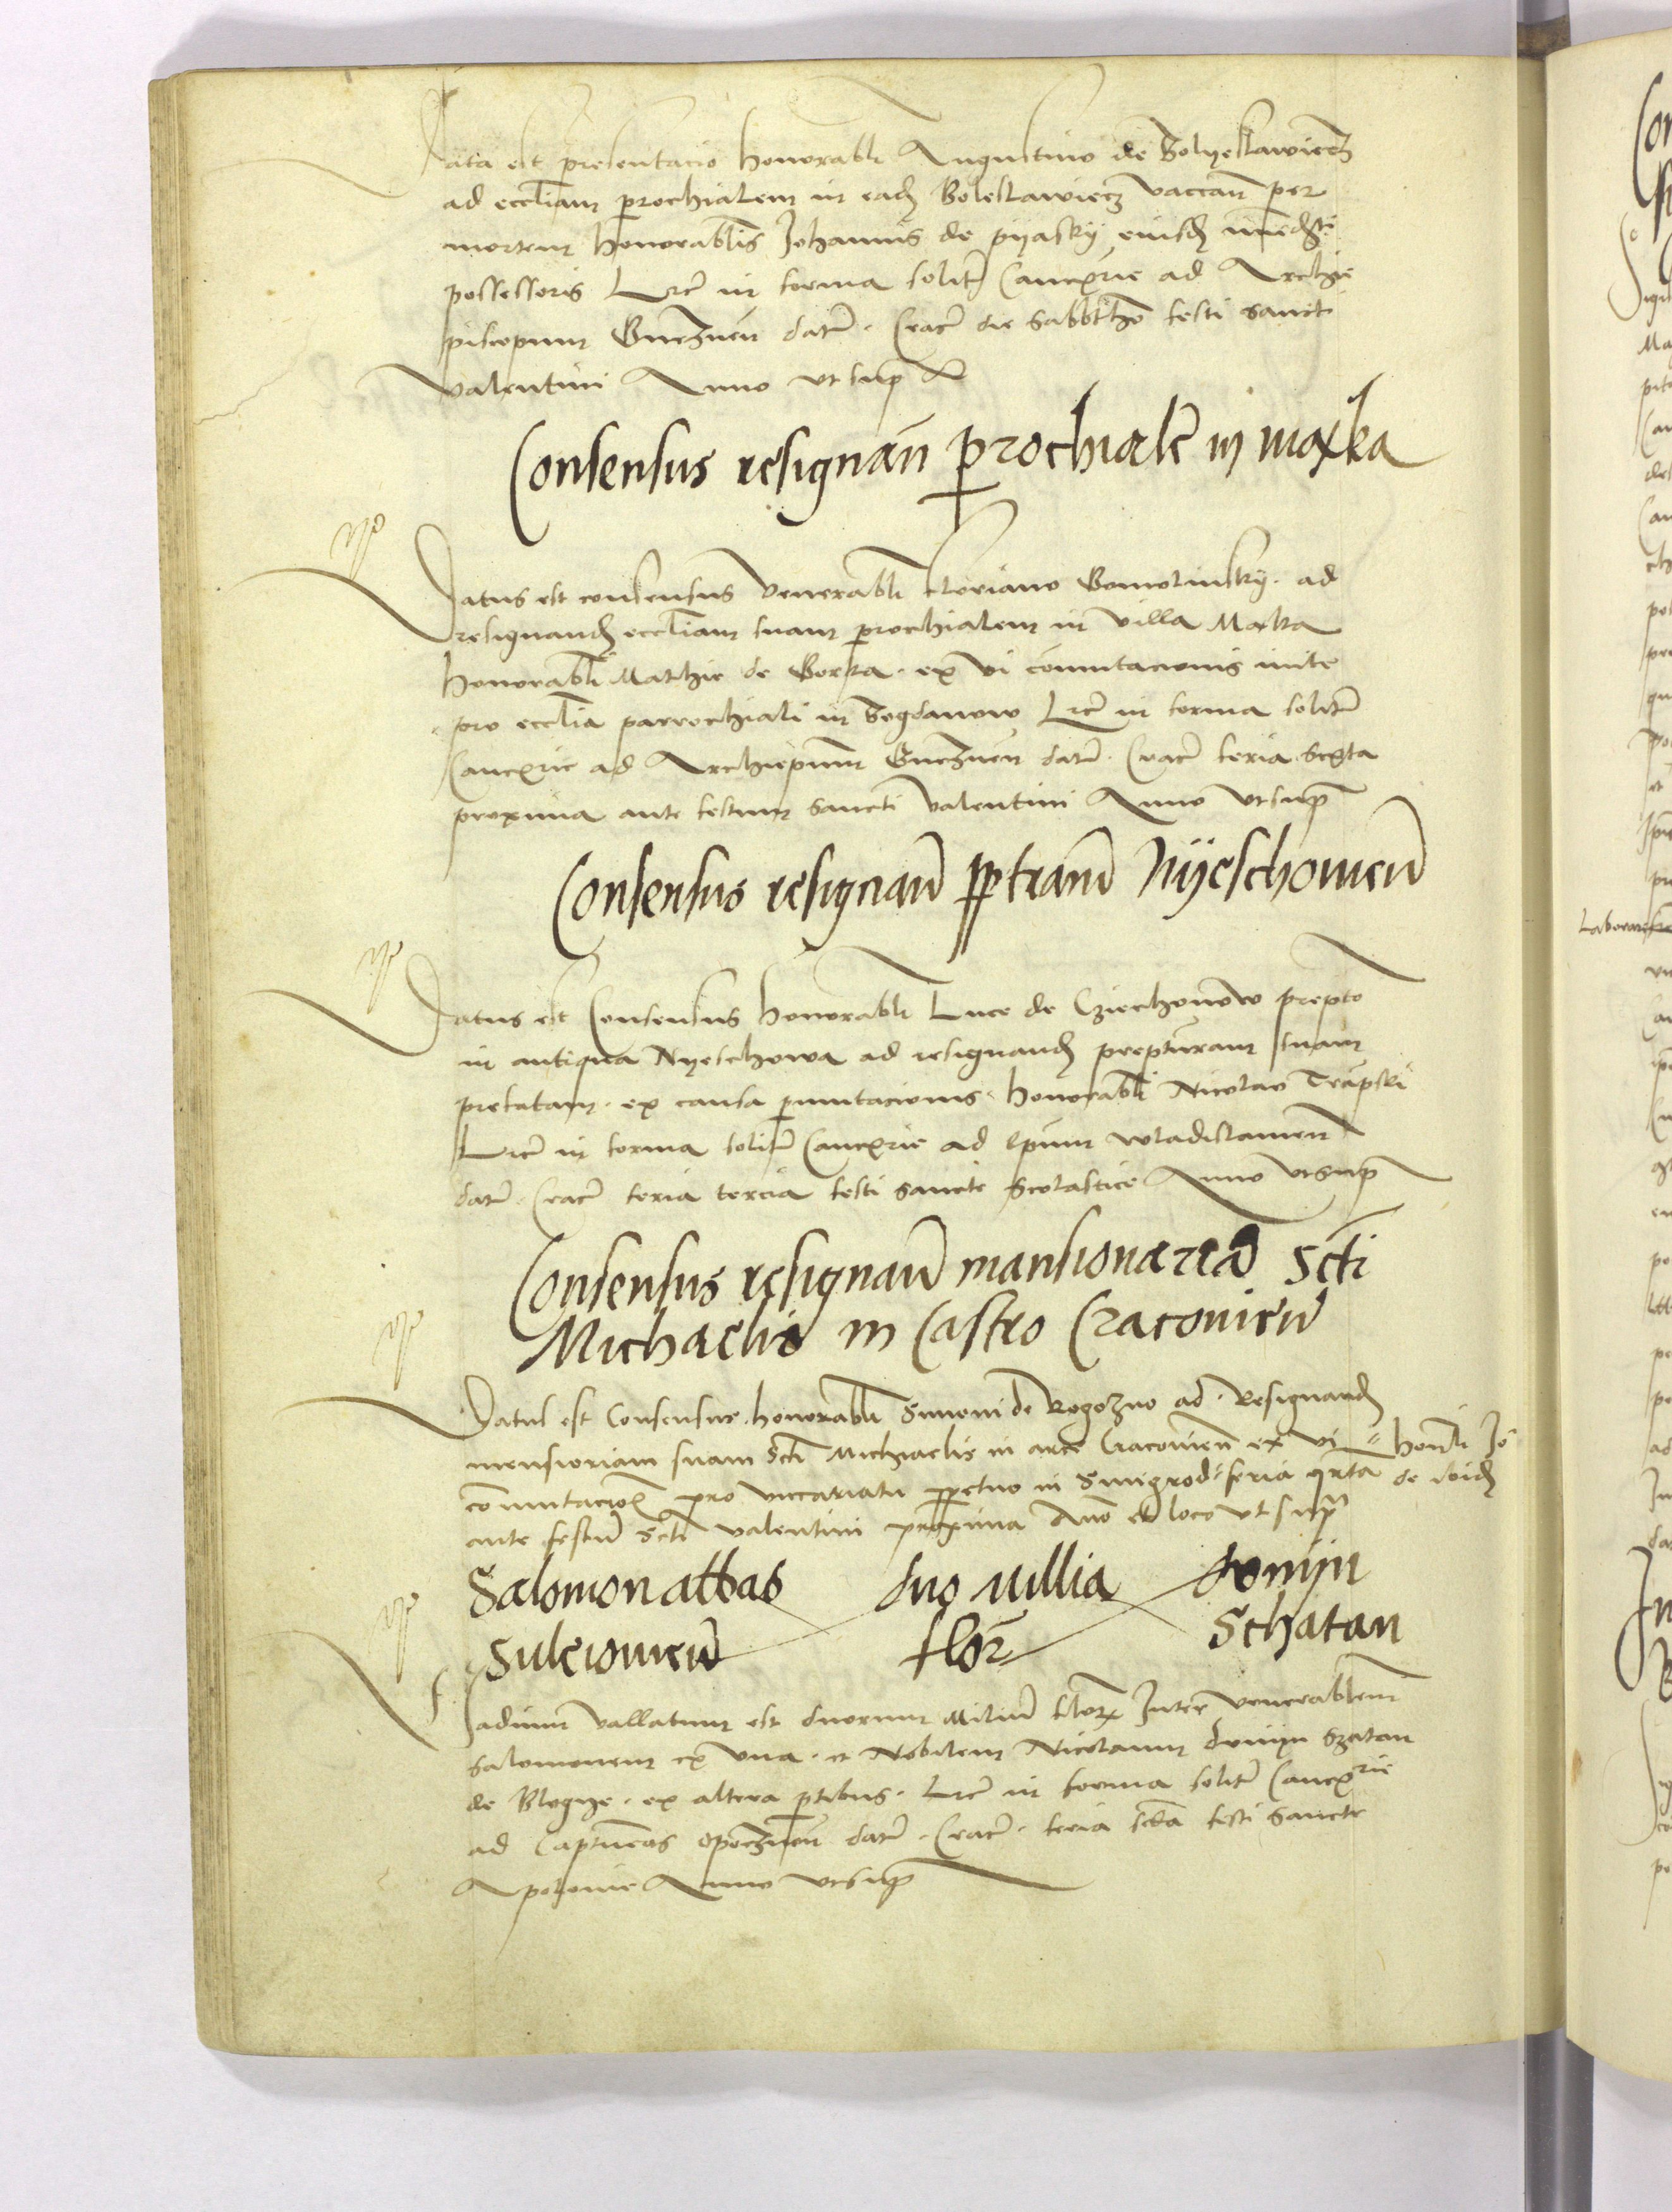 Data est presentacio honorabli Augustino de Bolyeslawiecz
ad eccliam prochialem in eadem Boleslawiecz vaccan per
mortem honorablis Johannis de pijasky eiusdem
possessoris Lre in forma solit Cancrie ad Archie
piscopum Gneznen dat. Crac die Sabbtho festi sancti
Valentini Anno vt sup
Consensus resignan prochiale in maxka
Datus est consensus Venerabli floriano Gomolinsky. ad
resignand eccliam suam prochialem in villa Maxka
honorabli Mathie de Gorka. ex vi comutacionis inite
pro ecclia parrochiali in Bogdanow Lre in forma solit
Cancrie ad Archiepum Gneznen dat. Crac feria sexta
proxima ante festum sancti Valentini Anno vt sup
Consensus resignan ppturam Nyeschouien
Datus est Consensus honorabli Luce de Cziechonow prepto
in antiqua Nyeschowa ad resignand prepturam suam
prefatam. ex causa pmutacionis. honorabli Nicolao Trapski
Lre in forma solit Cancrie ad Epum wladislauien
dat. Crac feria tercia festi sancte Scolastice Anno vt sup
Consensus resignan mansionaria Scti
Michaelis in Castro Cracouien
Datus est Consensus honorabli Simoni de Rogozno ad Resignand
mensioriam suam Scti Michaelis in arce Cracouien ex vi honli Jo
comutacion pro viccariatu ppetuo in Smigrod feria qrta de ibid
ante festum Scti valentini proxima Anno et loco vt supr
Salomon abbas duo millia domijn
Suleiouien flor Schatan
Vadium Vallatum est duorum Milium flor Inter venerablem
Salomonem ex vna. et Nobilem Nicolaum domijn Szatan
de Blogye. ex altera ptibus. Lre in forma solit Cancrie
ad Captueas Opoczn dat. Crac. feria scda festi sancte
Apolonie Anno vt sup